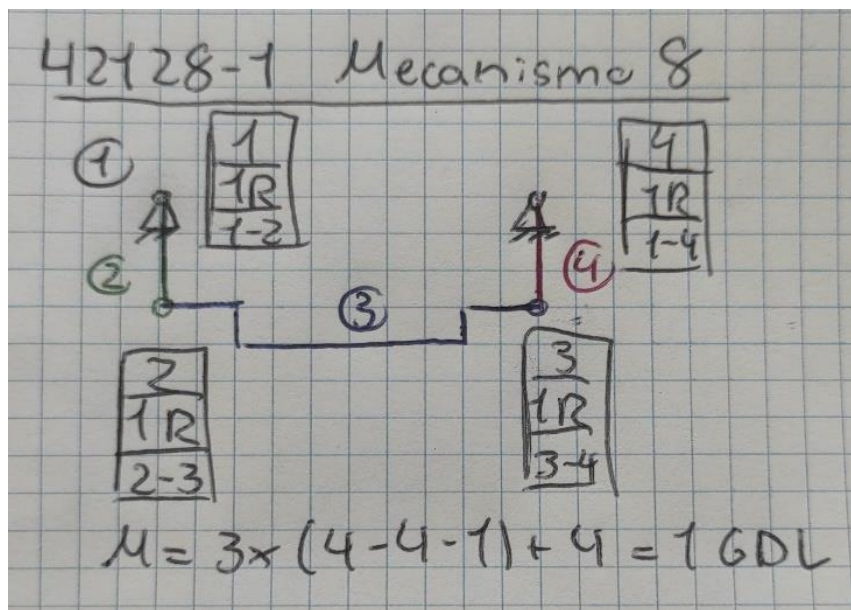 42128-1 Mecanismo 8
①
1
1R
1-2
4
1R
1-4
②
③
④
2
1R
2-3
3
1R
3-4
M = 3x (4-4-1) + 4 = 1 GDL